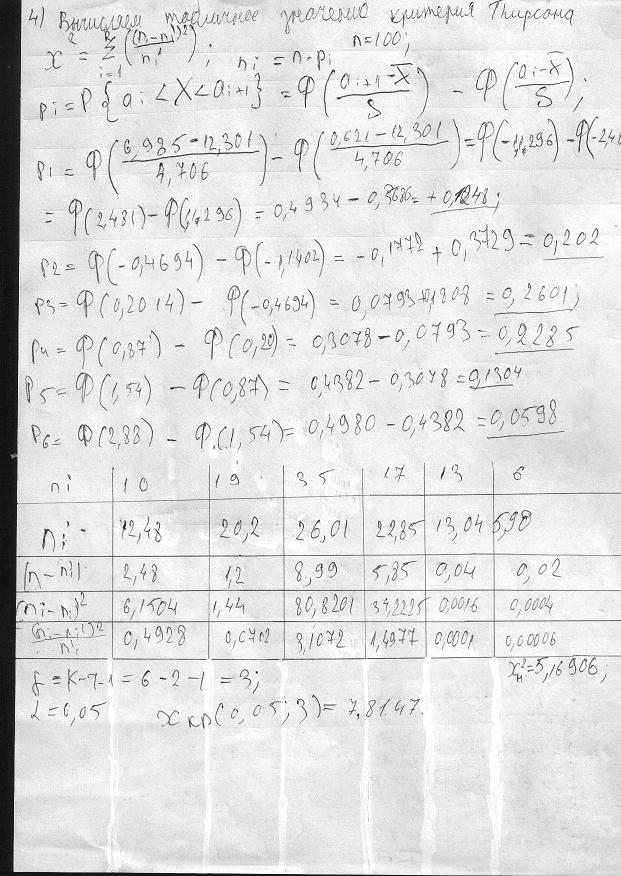 4) Вычисляем табличное значение критерия Пирсона
χ² = Σ i=1 ((n-ni')²/ni'); ni' = n·pi n=100;
pi = P{ai < X < ai+1} = Φ((ai+1 - X̄)/S) - Φ((ai - X̄)/S);
p1 = Φ((6,985-12,301)/4,706) - Φ((0,621-12,301)/4,706) = Φ(-1,1296) - Φ(-2,48
= Φ(2,481) - Φ(1,1296) = 0,4934 - 0,3686 = +0,1248;
p2 = Φ(-0,4694) - Φ(-1,1402) = -0,1772 + 0,3729 = 0,202
p3 = Φ(0,2014) - Φ(-0,4694) = 0,0793+0,1808 = 0,2601;
p4 = Φ(0,87) - Φ(0,20) = 0,3078 - 0,0793 = 0,2285
p5 = Φ(1,54) - Φ(0,87) = 0,4382 - 0,3078 = 0,1304
p6 = Φ(2,88) - Φ(1,54) = 0,4980 - 0,4382 = 0,0598
ni 10 19 35 17 13 6
ni' 12,48 20,2 26,01 22,85 13,04 5,98
|n-ni'| 2,48 1,2 8,99 5,85 0,04 0,02
(ni-ni)² 6,1504 1,44 80,8201 34,2225 0,0016 0,0004
(ni-ni')²/ni' 0,4928 0,0712 3,1072 1,4977 0,0001 0,00006
f = K-r-1 = 6-2-1 = 3; χн² = 5,16906;
α = 0,05 χкр(0,05; 3) = 7,8147.